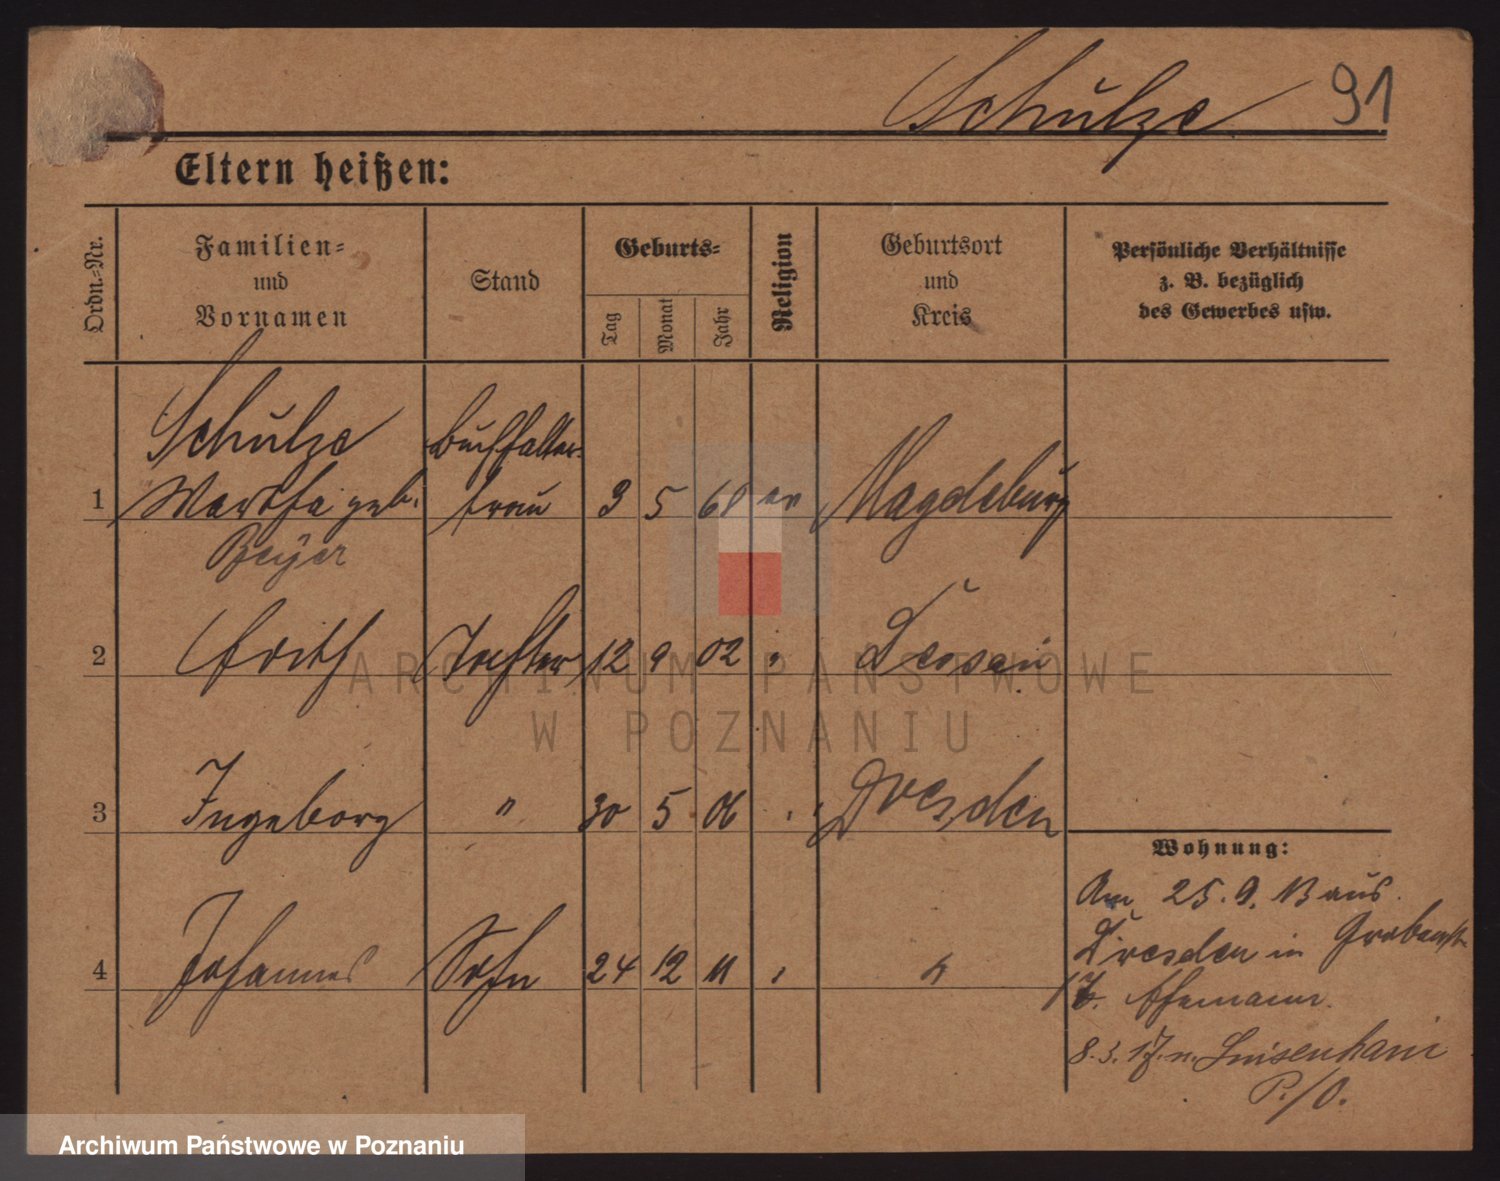 Schulze 91
Eltern heißen:
Ordn.-Nr.
Familien-
und
Vornamen
Stand
Geburts-
Tag
Monat
Jahr
Religion
Geburtsort
und
Kreis
Persönliche Verhältnisse
z. B. bezüglich
des Gewerbes usw.
Schulze Buchhalter-
1 Martha geb. frau 3 5 68 ev Magdeburg
Beyer
2 Edith Tochter 12 9 02 "
3 Ingeborg " 30 5 06 " Dresden
4 Johannes Sohn 24 12 11 "
Wohnung:
Am 25. 9. 13 aus
Dresden in Grabenstr
17. Ehemann.
8. 3. 17. n. Luisenhain
P./O.
ARCHIWUM PAŃSTWOWE
W POZNANIU
Archiwum Państwowe w Poznaniu